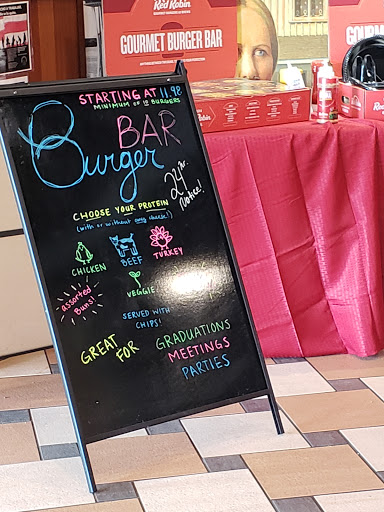 Red Robin
GOURMET BURGER BAR
STARTING AT 11.98
MINIMUM OF 10 BURGERS
Burger BAR
24 hr.
Notice!
CHOOSE YOUR PROTEIN
(with or without any cheese!)
CHICKEN
BEEF
TURKEY
VEGGIE
assorted
Buns!
SERVED WITH
CHIPS!
GREAT
FOR
GRADUATIONS
MEETINGS
PARTIES
Red Robin
GOURMET